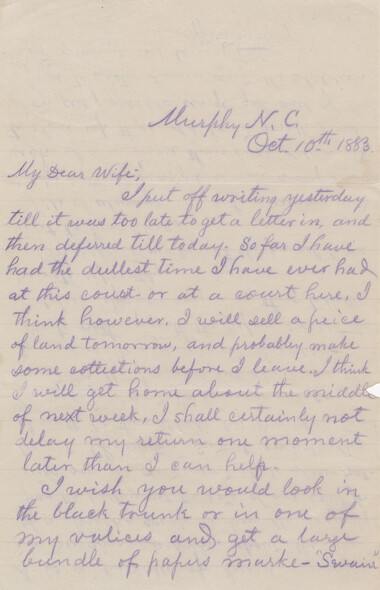 Murphy N. C.
Oct. 10th 1883
My Dear Wife;
I put off writing yesterday
till it was too late to get a letter in, and
then deferred till today. So far I have
had the dullest time I have ever had
at this court or at a court here, I
think however, I will sell a peice
of land tomorrow, and probably make
some collections before I leave. I think
I will get home about the middle
of next week, I shall certainly not
delay my return one moment
later than I can help.
I wish you would look in
the black trunk or in one of
my valices and get a large
bundle of papers marke- "Swain"